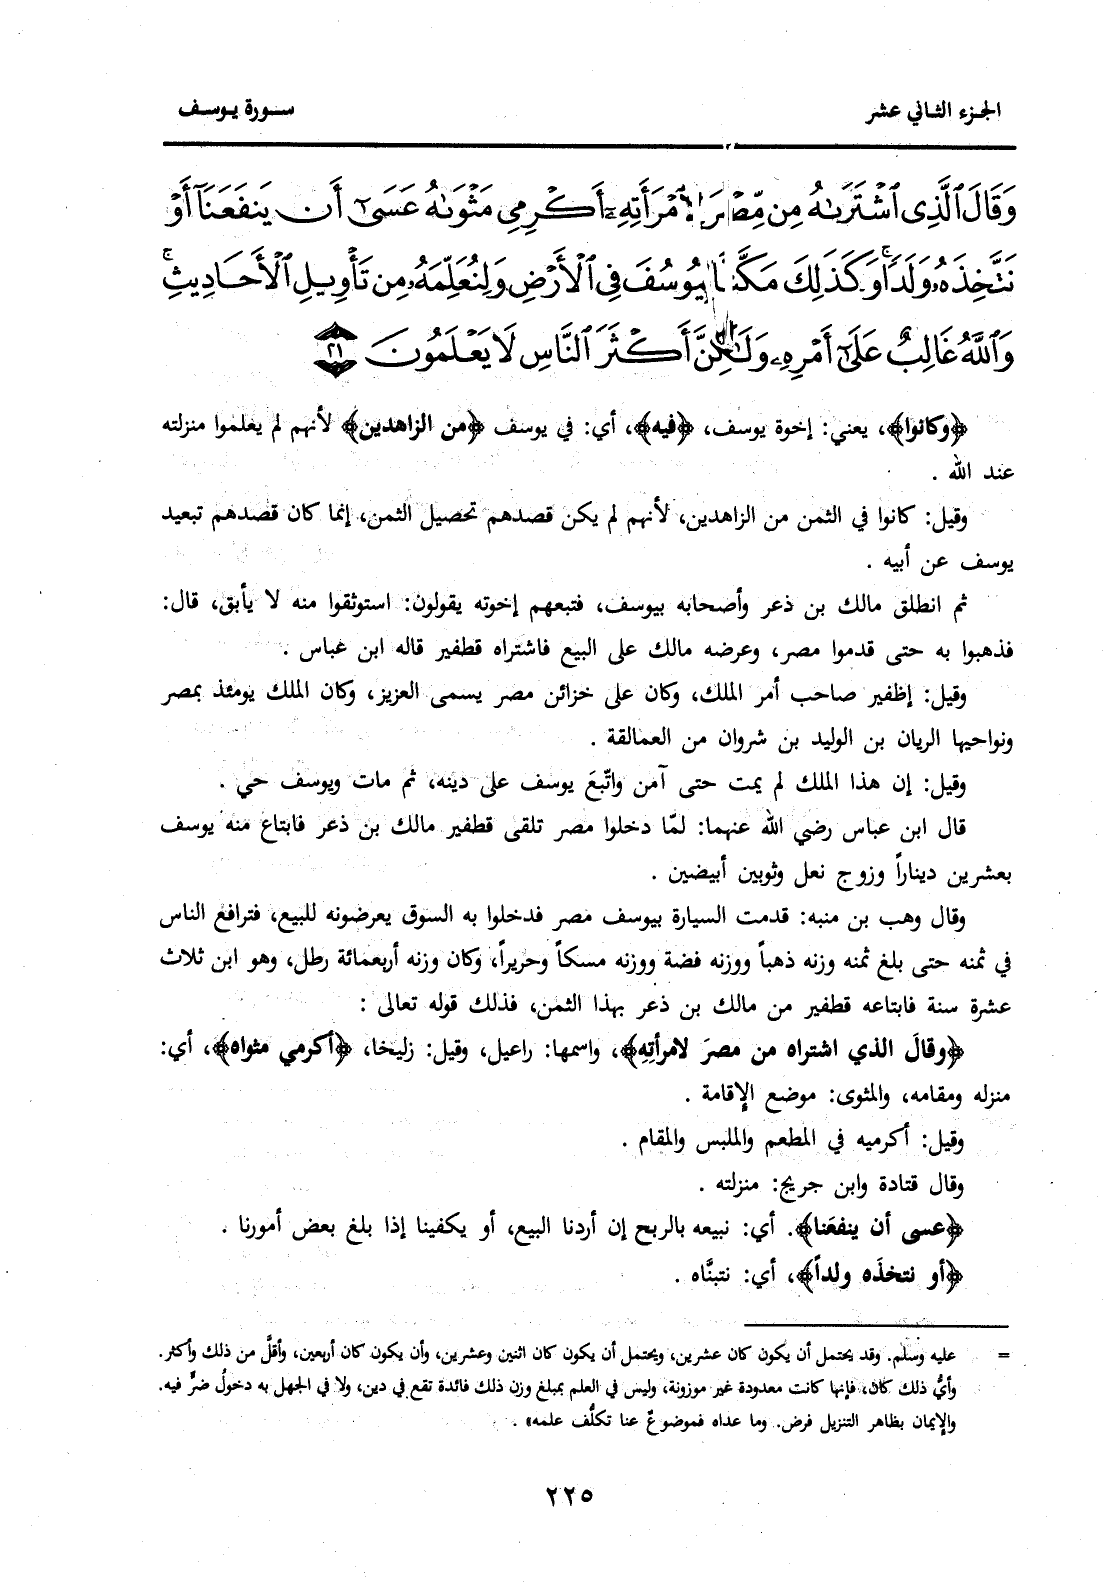 الجزء الثاني عشر
سورة يوسف
وَقَالَ ٱلَّذِى ٱشْتَرَىٰهُ مِن مِّصْرَ لِٱمْرَأَتِهِۦٓ أَكْرِمِى مَثْوَىٰهُ عَسَىٰٓ أَن يَنفَعَنَآ أَوْ
نَتَّخِذَهُۥ وَلَدًا ۚ وَكَذَٰلِكَ مَكَّنَّا لِيُوسُفَ فِى ٱلْأَرْضِ وَلِنُعَلِّمَهُۥ مِن تَأْوِيلِ ٱلْأَحَادِيثِ ۚ
وَٱللَّهُ غَالِبٌ عَلَىٰٓ أَمْرِهِۦ وَلَٰكِنَّ أَكْثَرَ ٱلنَّاسِ لَا يَعْلَمُونَ ٢١
﴿وكانوا﴾، يعني: إخوة يوسف، ﴿فيه﴾، أي: في يوسف ﴿من الزاهدين﴾ لأنهم لم يعلموا منزلته
عند الله .
وقيل: كانوا في الثمن من الزاهدين، لأنهم لم يكن قصدهم تحصيل الثمن، إنما كان قصدهم تبعيد
يوسف عن أبيه .
ثم انطلق مالك بن ذعر وأصحابه بيوسف، فتبعهم إخوته يقولون: استوثقوا منه لا يأبق، قال:
فذهبوا به حتى قدموا مصر، وعرضه مالك على البيع فاشتراه قطفير قاله ابن عباس .
وقيل: إظفير صاحب أمر الملك، وكان على خزائن مصر يسمى العزيز، وكان الملك يومئذ بمصر
ونواحيها الريان بن الوليد بن شروان من العمالقة .
وقيل: إن هذا الملك لم يمت حتى آمن واتّبعَ يوسف على دينه، ثم مات ويوسف حي .
قال ابن عباس رضي الله عنهما: لمّا دخلوا مصر تلقى قطفير مالك بن ذعر فابتاع منه يوسف
بعشرين ديناراً وزوج نعل وثوبين أبيضين .
وقال وهب بن منبه: قدمت السيارة بيوسف مصر فدخلوا به السوق يعرضونه للبيع، فترافع الناس
في ثمنه حتى بلغ ثمنه وزنه ذهباً ووزنه فضة ووزنه مسكاً وحريراً، وكان وزنه أربعمائة رطل، وهو ابن ثلاث
عشرة سنة فابتاعه قطفير من مالك بن ذعر بهذا الثمن، فذلك قوله تعالى :
﴿وقالَ الذي اشتراه من مصرَ لامرأتِهِ﴾، واسمها: راعيل، وقيل: زليخا، ﴿أكرمي مثواه﴾، أي:
منزله ومقامه، والمثوى: موضع الإقامة .
وقيل: أكرميه في المطعم والملبس والمقام .
وقال قتادة وابن جريج: منزلته .
﴿عسى أن ينفعَنا﴾. أي: نبيعه بالربح إن أردنا البيع، أو يكفينا إذا بلغ بعض أمورنا .
﴿أو نتخذَه ولداً﴾، أي: نتبنَّاه .
= عليه وسلم. وقد يحتمل أن يكون كان عشرين، ويحتمل أن يكون كان اثنين وعشرين، وأن يكون كان أربعين، وأقلَّ من ذلك وأكثر.
وأيُّ ذلك كان، فإنها كانت معدودة غير موزونة، وليس في العلم بمبلغ وزن ذلك فائدة تقع في دين، ولا في الجهل به دخولُ ضرٍّ فيه.
والإيمان بظاهر التنزيل فرض. وما عداه فموضوعٌ عنا تكلُّف علمه» .
٢٢٥